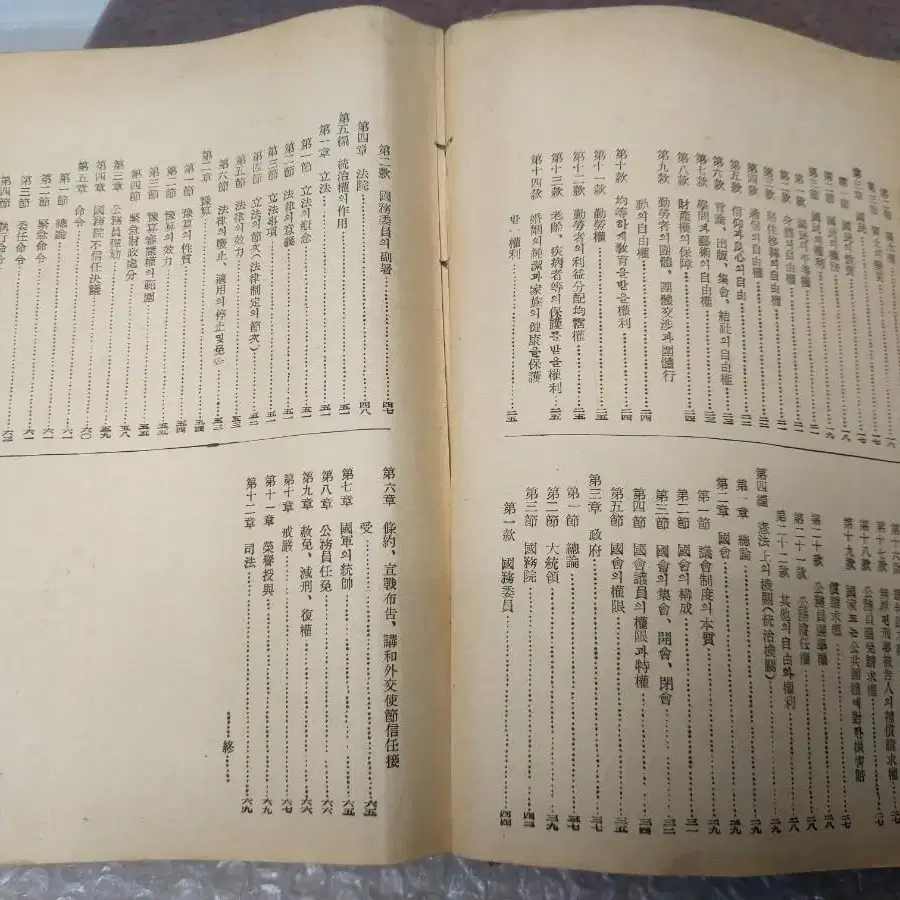 第三章 國民
第一節 國民의性質 一八
第二節 國民의義務 一九
第三節 國民의權利
第一款 國民의平等權
第四款 通信의自由權
第五款 信仰과良心의自由
第六款 言論、出版、集會、結社의自由權
第七款 學問과藝術의自由權
第八款 財產權의保障 二四
第九款 勤勞者의團體、團體交涉과團體行
動의自由權 二四
第十款 均等하게敎育을받을權利 二四
第十一款 勤勞權 二五
第十二款 勤勞者의利益分配均霑權 二五
第十三款 老齡、疾病者等의保護를받을權利 二五
第十四款 婚姻의純潔과家族의健康을保護
받、權利 二五
第十七款 無罪된刑事被告人의補償請求權 二七
第十八款 公務員罷免請求權 二七
第十九款 國家또는公共團體에對한損害賠
償請求權 二七
第二十款 公務員選擧權 二八
第二十一款 公務擔任權 二八
第二十二款 其他의自由와權利 二八
第四編 憲法上의機關(統治機關) 二九
第一章 總論 二九
第二章 國會 二九
第一節 議會制度의本質 二九
第二節 國會의構成 三一
第三節 國會의集會、開會、閉會 三二
第四節 國會議員의權限과特權 三四
第五節 國會의權限 三五
第三章 政府 三七
第一節 總論 三七
第二節 大統領 三九
第三節 國務院 四三
第一款 國務委員 四四
第二款 國務委員의副署 四七
第四章 法院 四八
第五編 統治權의作用 五一
第一章 立法 五一
第一節 立法의槪念 五一
第二節 法律의意義 五一
第三節 立法事項 五一
第四節 立法의節次(法律制定의節次) 五二
第五節 法律의效力 五三
第六節 法律의廢止、適用의停止및免除 五三
第二章 豫算 五四
第一節 豫算의性質 五四
第二節 豫算의效力 五五
第三節 豫算審議權의範圍 五五
第四節 緊急財政處分 五五
第三章 公務員彈劾 五八
第四章 國務院不信任決議 五九
第五章 命令 六〇
第一節 總論 六一
第二節 緊急命令 六一
第三節 委任命令 六二
第四節 執行命令 六三
第六章 條約、宣戰布告、講和外交使節信任接
受 六五
第七章 國軍의統帥 六五
第八章 公務員任免 六六
第九章 赦免、減刑、復權 六六
第十章 戒嚴 六七
第十一章 榮譽授與 六九
第十二章 司法 六九
終